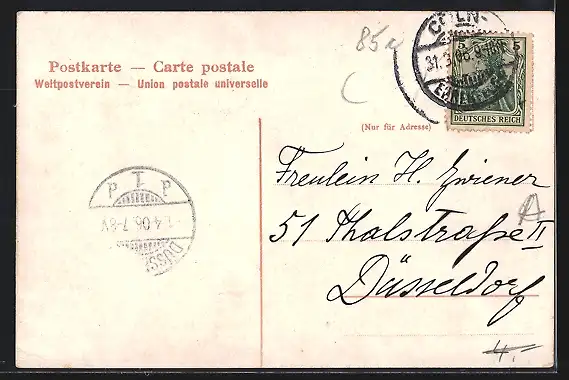 85a
C
Postkarte — Carte postale
Weltpostverein — Union postale universelle
CÖLN-
31.3.06.9-10
EHRENFELD
5 5
DEUTSCHES REICH
(Nur für Adresse)
Freulein H. Zwiener
A
51 Thalstraße II
Düsseldorf
4.06.7-8V
DÜSS
4.-